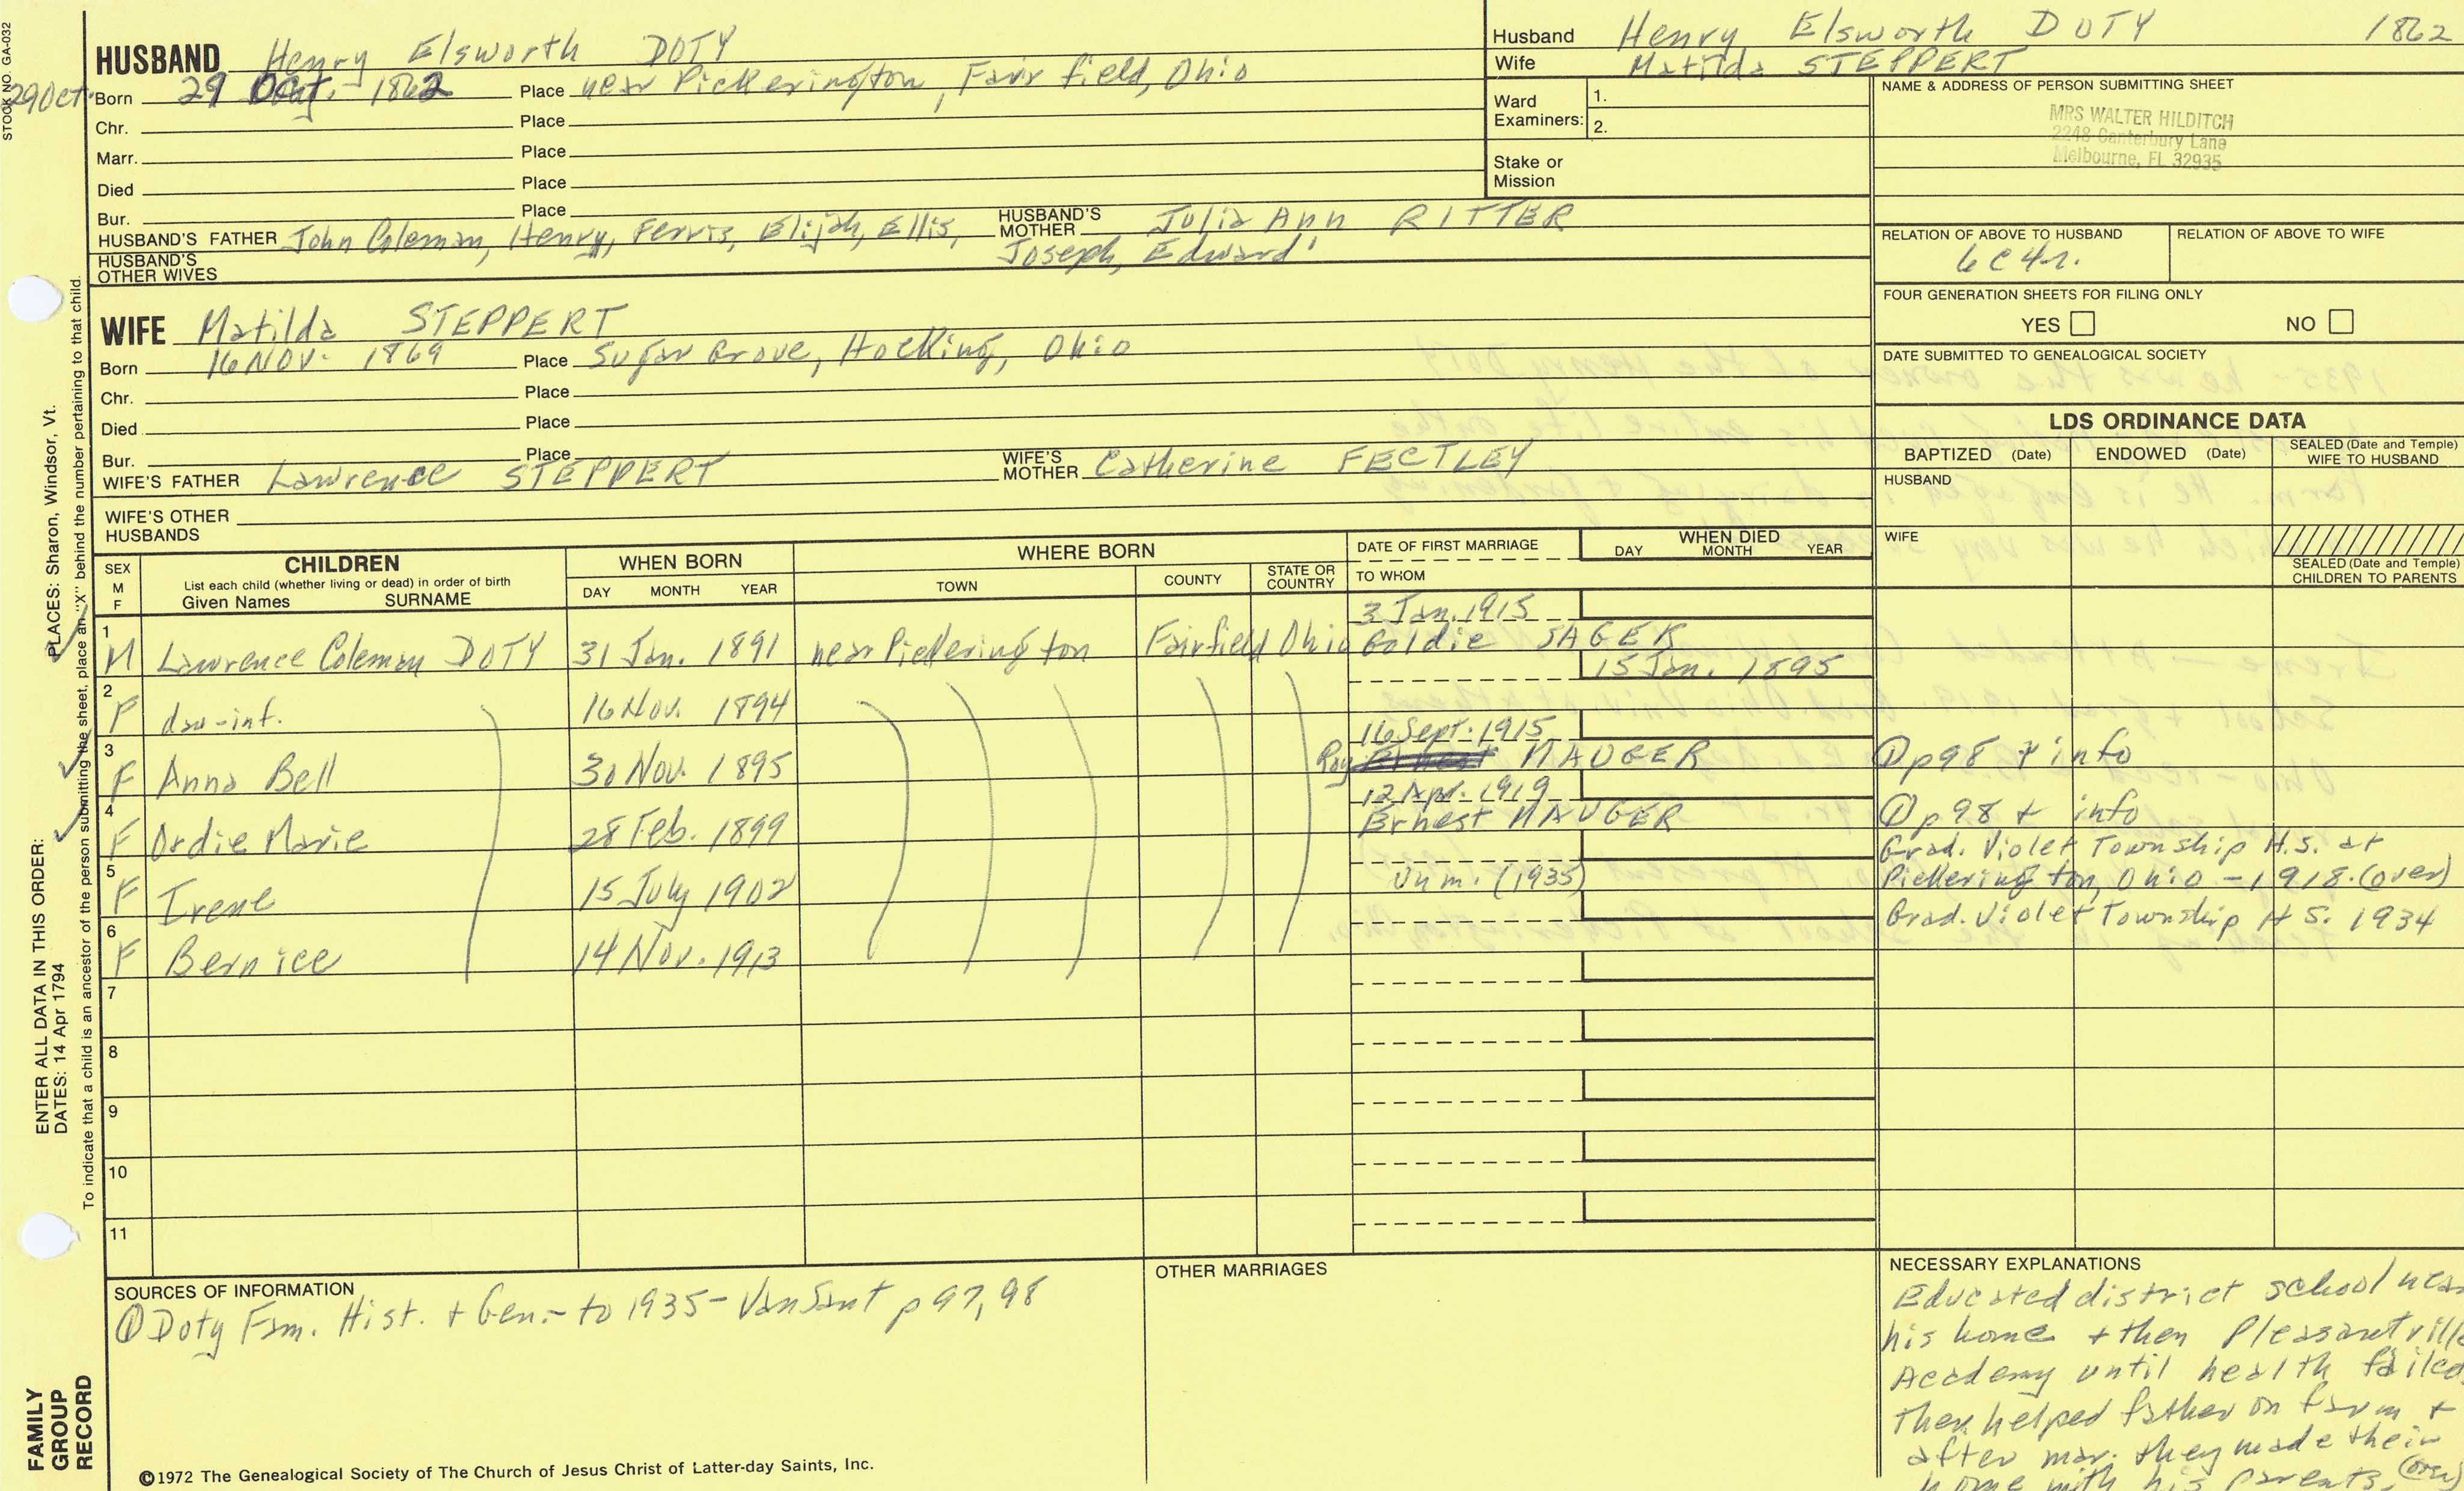 STOCK NO. GA-032
HUSBAND Henry Elsworth DOTY
29 Oct. Born 29 Oct. 1862 Place near Pickerington, Fairfield, Ohio
Chr. Place
Marr. Place
Died Place
Bur. Place
HUSBAND'S FATHER John Coleman, Henry, Ferris, Elijah, Ellis, HUSBAND'S MOTHER Julia Ann RITTER
Joseph, Edward
HUSBAND'S OTHER WIVES
WIFE Matilda STEPPERT
Born 16 NOV. 1869 Place Sugar Grove, Hocking, Ohio
Chr. Place
Died Place
Bur. Place
WIFE'S FATHER Lawrence STEPPERT WIFE'S MOTHER Catherine FECTLEY
WIFE'S OTHER HUSBANDS
Husband Henry Elsworth DOTY 1862
Wife Matilda STEPPERT
Ward Examiners: 1.
2.
Stake or Mission
NAME & ADDRESS OF PERSON SUBMITTING SHEET
MRS WALTER HILDITCH
2248 Canterbury Lane
Melbourne, FL 32935
RELATION OF ABOVE TO HUSBAND RELATION OF ABOVE TO WIFE
6C4r.
FOUR GENERATION SHEETS FOR FILING ONLY
YES NO
DATE SUBMITTED TO GENEALOGICAL SOCIETY
LDS ORDINANCE DATA
BAPTIZED (Date) ENDOWED (Date) SEALED (Date and Temple) WIFE TO HUSBAND
HUSBAND
WIFE
SEALED (Date and Temple) CHILDREN TO PARENTS
SEX M F CHILDREN WHEN BORN WHERE BORN DATE OF FIRST MARRIAGE WHEN DIED
List each child (whether living or dead) in order of birth
Given Names SURNAME DAY MONTH YEAR TOWN COUNTY STATE OR COUNTRY TO WHOM DAY MONTH YEAR
3 Jan. 1915
1 M Lawrence Coleman DOTY 31 Jan. 1891 near Pickerington Fairfield Ohio Goldie SAGER
15 Jan. 1895
2 F dau-inf. 16 Nov. 1894
16 Sept. 1915
3 F Anna Bell 30 Nov. 1895 Roy MAUGER ① p98 + info
12 Apr. 1919
4 F Ordie Marie 28 Feb. 1899 Ernest MAUGER ① p98 + info
5 F Irene 15 July 1902 Unm. (1935) Grad. Violet Township H.S. at
Pickerington, Ohio - 1918. (over)
6 F Bernice 14 Nov. 1913 Grad. Violet Township H S. 1934
7
8
9
10
11
SOURCES OF INFORMATION
① Doty Fam. Hist. + Gen. - to 1935 - VanSant p 97, 98
OTHER MARRIAGES
NECESSARY EXPLANATIONS
Educated district school near
his home + then Pleasantville
Academy until health failed.
Then helped father on farm +
after mar. they made their
home with his parents. (over)
©1972 The Genealogical Society of The Church of Jesus Christ of Latter-day Saints, Inc.
ENTER ALL DATA IN THIS ORDER:
DATES: 14 Apr 1794 PLACES: Sharon, Windsor, Vt.
To indicate that a child is an ancestor of the person submitting the sheet, place an "X" behind the number pertaining to that child.
FAMILY
GROUP
RECORD